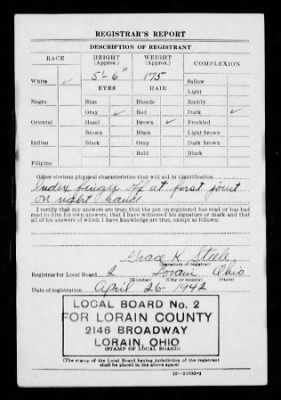 REGISTRAR'S REPORT
DESCRIPTION OF REGISTRANT
RACE HEIGHT (Approx.) WEIGHT (Approx.) COMPLEXION
White ✓ 5'-6" 175 Sallow
EYES HAIR Light
Negro Blue Blonde Ruddy
Gray ✓ Red Dark ✓
Oriental Hazel Brown ✓ Freckled
Brown Black Light brown
Indian Black Gray Dark brown
Bald Black
Filipino
Other obvious physical characteristics that will aid in identification
Index finger off at first joint
on right hand
I certify that my answers are true; that the person registered has read or has had
read to him his own answers; that I have witnessed his signature or mark and that
all of his answers of which I have knowledge are true, except as follows:
Grace K. Steele
(Signature of registrar)
Registrar for Local Board 2 Lorain Ohio
(Number) (City or county) (State)
Date of registration April 26-1942
LOCAL BOARD No. 2
FOR LORAIN COUNTY
2146 BROADWAY
LORAIN, OHIO
(STAMP OF LOCAL BOARD)
(The stamp of the Local Board having jurisdiction of the registrant
shall be placed in the above space)